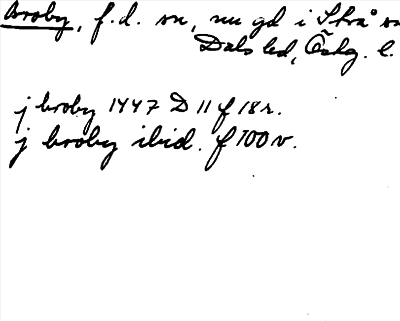 Broby, f.d. sn, nu gd i Strå sn
Dals hd, Östg. l.
j broby 1447 D 11 f 18 r.
j broby ibid. f 100 v.